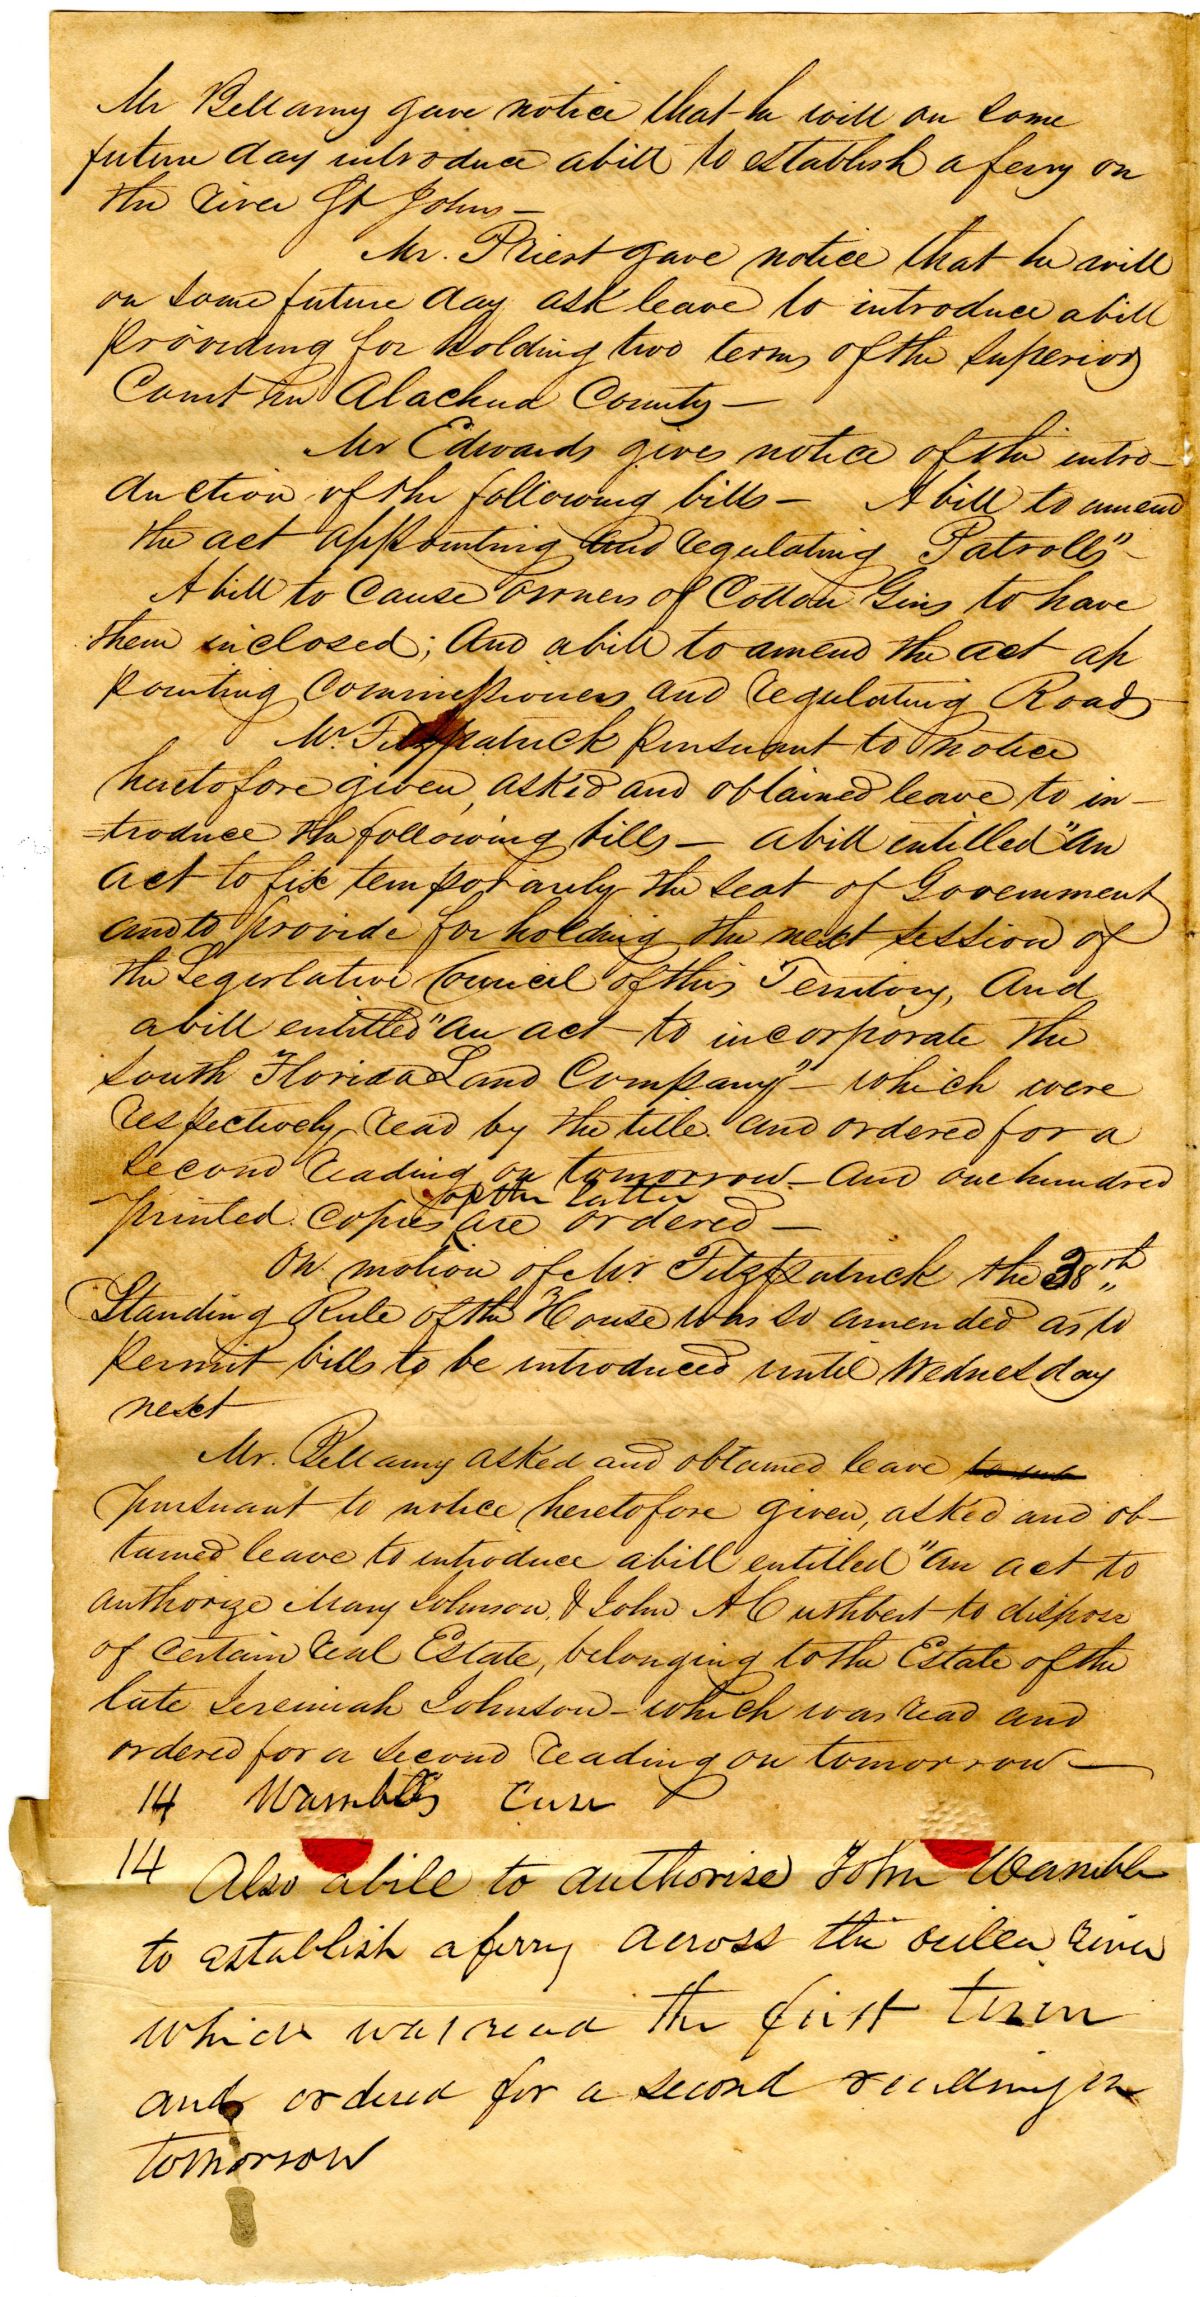 Mr Bellamy gave notice that he will on some
future day introduce a bill to establish a ferry on
the river St Johns —
Mr. Priest gave notice that he will
on some future day ask leave to introduce a bill
providing for holding two terms of the superior
Court in Alachua County —
Mr Edwards gives notice of the intro-
duction of the following bills — A bill to amend
the act appointing and regulating Patrolls" —
A bill to cause owners of Cotton Gins to have
them inclosed; And a bill to amend the act ap
pointing Commissioners and regulating Roads
Mr. Fitzpatrick pursuant to notice
heretofore given, asked and obtained leave to in-
=troduce the following bills — a bill entitled "An
act to fix temporarily the seat of Government
and to provide for holding the next session of
the Legislative Council of this Territory, And
a bill entitled "An act to incorporate the
South Florida Land Company" — which were
respectively read by the title and ordered for a
second reading on tomorrow — and one hundred
of the latter
printed copies are ordered —
On motion of Mr Fitzpatrick the 38th
Standing Rule of the House was so amended as to
permit bills to be introduced until Wednesday
next
Mr. Bellamy asked and obtained leave
pursuant to notice heretofore given, asked and ob-
tained leave to introduce a bill entitled "An act to
authorize Mary Johnson, & John A Cuthbert to dispose
of certain real Estate, belonging to the Estate of the
late Jeremiah Johnson — which was read and
ordered for a second reading on tomorrow —
14 Wambles
14 Also a bill to authorise John Wamble
to establish a ferry across the river
which was read the first time
and ordered for a second reading on
tomorrow